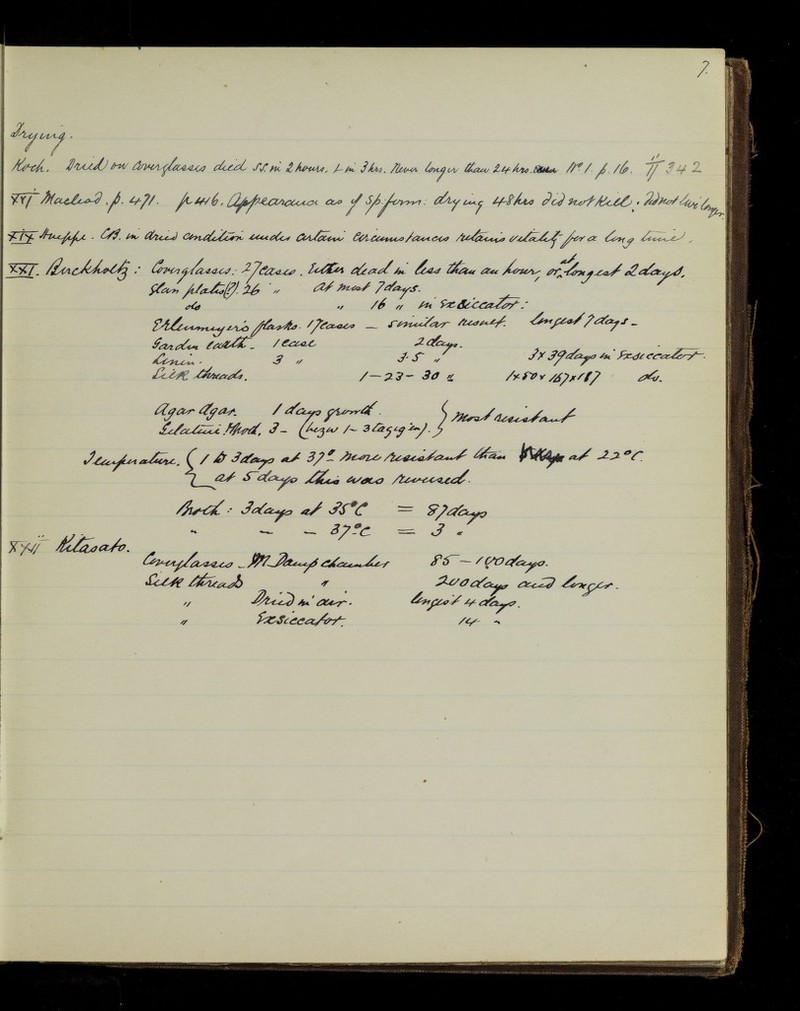 7.
Drying.
Koch. Dried on Coverglasses died ss. in 2 hours. L in 3 hrs. Never longer than 24 hrs. No 1. p. 16. II 342
XVI Macleod. p. 471. p 416. Appearance as if sp. form: drying 48 hrs did not kill: did not live longer.
XIX Hueppe. CB. in dried condition under certain circumstances retains vitality for a long time.
XXI. Berckholtz: Coverglasses: 27 cases. Either dead in less than an hour, or at longest 2 days.
Glass plates (?). 26 " at most 7 days.
do " 16 " in Exsiccator:
Erlenmeyer's flasks. 17 cases — similar result. longest 7 days -
Garden earth - 1 case 2 days.
Linen. 3 " 3.5 " 3 x 39 days in Exsiccator.
Silk threads. 1 — 23 - 30 " 1 x 50 x 167 x 187 do.
Agar Agar. 1 days growth. } Most resistant
Gelatine. 3 - (bezw 1 - 3 tagigen). }
Temperature. { 1 to 3 days at 37° more resistant than at 22°C.
{ at 5 days this was reversed.
Broth: 3 days at 35°C = 87 days
" — — 37°C = 3 "
XXII Kitasato.
Coverglasses - Damp chamber 85 — 100 days.
Silk threads " 200 days and longer.
" Dried in air. longest 4 days.
" Exsiccator. 14 "